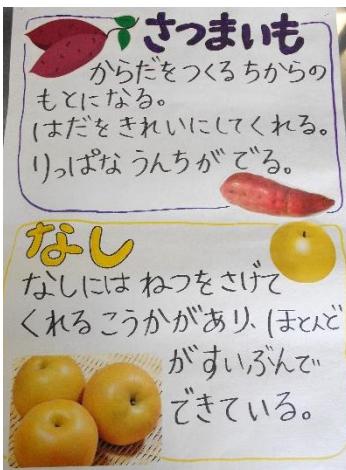 さつまいも
からだをつくるちからの
もとになる。
はだをきれいにしてくれる。
りっぱなうんちがでる。
なし
なしにはねつをさげて
くれるこうかがあり、ほとんど
がすいぶんで
できている。